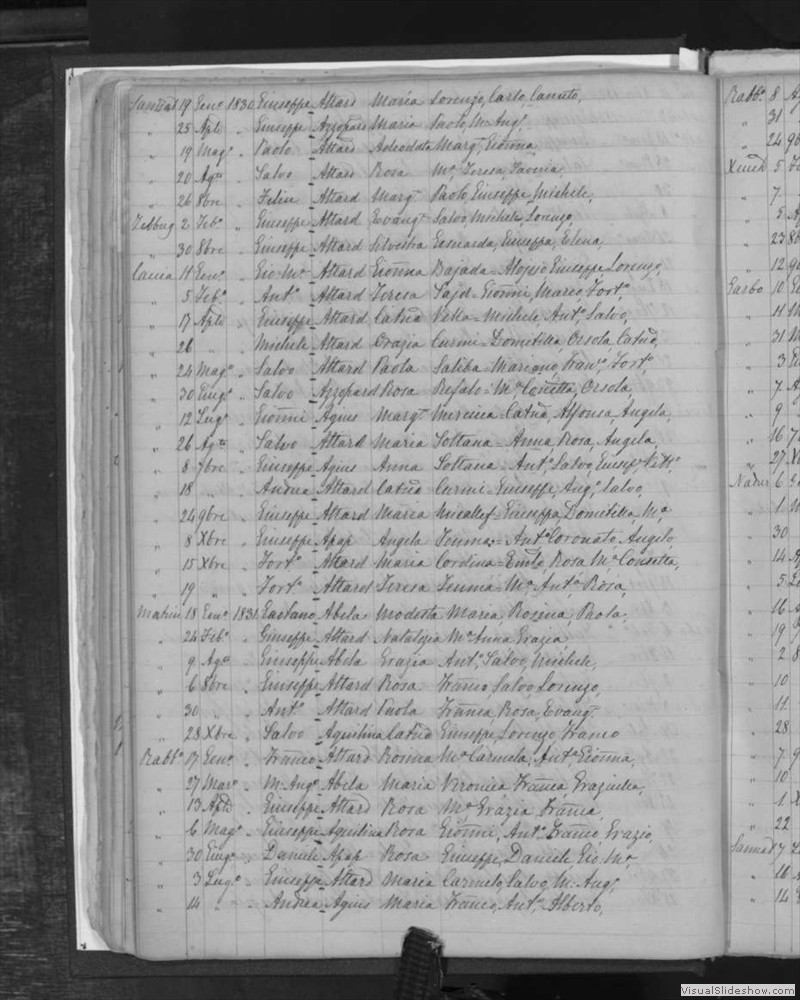 Sannat 19 Gen.o 1830 Giuseppe Attard Maria Lorenzo, Carlo, Canuto,
" 25 Aple " Giuseppe Azzopard Maria Paolo, M. Ang.o
" 19 Mag.o " Paolo Attard Adeodata Marg.ta, Gionna
" 20 Ag.to " Salvo Attard Rosa M.a, Teresa, Saveria,
" 26 8bre " Felice Attard Marg.ta Paolo, Giuseppe, Michele,
Zebbug 2 Feb.o " Giuseppe Attard Evang.ta Salvo, Michele, Lorenzo,
" 30 8bre " Giuseppe Attard Silvestra Leonarda, Giuseppa, Elena,
Caccia 11 Gen.o " Gio. M.a Attard Gionna Bajada - Aloysio Giuseppe Lorenzo,
" 5 Feb.o " Ant.o Attard Teresa Said - Gionni, Marco, Fort.o
" 17 Aple " Giuseppe Attard Catna Vella - Michele Ant.o, Salvo,
" 26 " " Michele Attard Grazia Curmi - Domenica, Orsola, Catna,
" 24 Mag.o " Salvo Attard Paola Saliba - Mariano, Fran.co, Fort.o
" 30 Giug.o " Salvo Azzopard Rosa Refalo - M.a Concetta, Orsola,
" 12 Lug.o " Gionni Agius Marg.ta - Catna, Alfonsa, Angela,
" 26 Ag.to " Salvo Attard Maria Sultana - Anna Rosa, Angela,
" 8 7bre " Giuseppe Agius Anna Sultana - Ant.o, Salvo, Giusep.e
" 18 " " Andrea Attard Catna Curmi - Giuseppe, Aug.o, Salvo,
" 24 9bre " Giuseppe Attard Maria Micallef - Giuseppa, Domenica M.a
" 8 Xbre " Giuseppe Apap Angela Teuma - Ant.o Coronato, Angelo
" 15 Xbre " Fort.o Attard Maria Cordina - Rosa, M.a Concetta,
" 19 " " Fort.o Attard Teresa Teuma - M.a, Ant.a Rosa,
18 Gen.o 1831 Gaetano Abela Modesta Maria, Rosina, Paola,
" 24 Feb.o " Giuseppe Attard Natalizia M.a Anna Grazia
" 9 Ag.to " Giuseppe Abela Grazia Ant.o, Salvo, Michele,
" 6 8bre " Giuseppe Attard Rosa Franco, Salvo, Lorenzo,
" 30 " " Ant.o Attard Paola Franca Rosa, Evang.ta
" 28 Xbre " Salvo Aquilina Catna Giuseppe, Lorenzo, Franco
Rabb.o 17 Gen.o " Franco Attard Rosina M.a Carmela, Ant.a, Gionna,
" 27 Mar.o " M. Ang.o Abela Maria Veronica Franca,
" 13 Aple " Giuseppe Attard Rosa M.a Grazia Franca
" 6 Mag.o " Giuseppe Aquilina Rosa Gionni, Ant.o, Franco Grazio,
" 30 Giug.o " Daniele Apap Rosa Giuseppe, Daniele Gio. M.a
" 3 Lug.o " Giuseppe Attard Maria Carmelo, Salvo, M. Ang.o
" 14 " " Andrea Agius Maria Franco, Ant.o, Alberto,
Rabb.o 8
" 31
" 24
5
" 7
" 5
" 23
" 12
Garbo 10
" 11
" 31
" 3
" 7
" 9
" 16
" 27
Nadur 6
" 1
" 30
" 14
" 5
" 16
" 19
" 2
" 10
" 11
" 28
" 7
" 10
" 1
" 22
Sannat 7
" 16
" 14
VisualSlideshow.com